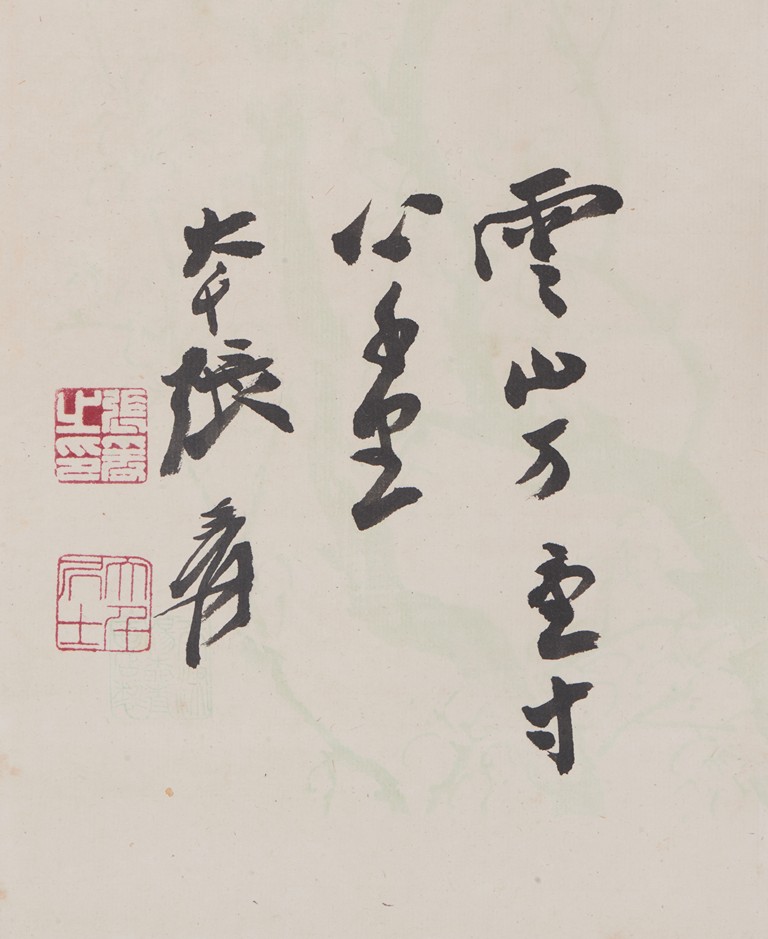 雲山万重寸
心千里
大千張爰
張爰之印
大千居士